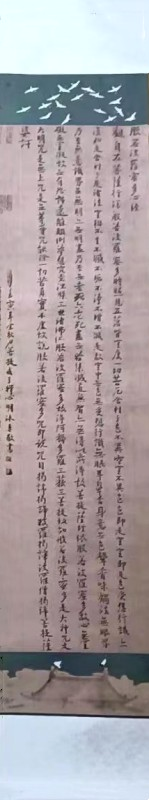 般若波羅蜜多心經
觀自在菩薩行深般若波羅蜜多時照見五蘊皆空度一切苦厄舍利子色不異空空不異色色即是空空即是色受想行識亦
復如是舍利子是諸法空相不生不滅不垢不淨不增不減是故空中無色無受想行識無眼耳鼻舌身意無色聲香味觸法無眼界
乃至無意識界無無明亦無無明盡乃至無老死亦無老死盡無苦集滅道無智亦無得以無所得故菩提薩埵依般若波羅蜜多故心無罣
礙無罣礙故無有恐怖遠離顛倒夢想究竟涅槃三世諸佛依般若波羅蜜多故得阿耨多羅三藐三菩提故知般若波羅蜜多是大神咒是
大明咒是無上咒是無等等咒能除一切苦真實不虛故說般若波羅蜜多咒即說咒曰揭諦揭諦波羅揭諦波羅僧揭諦菩提薩
婆訶